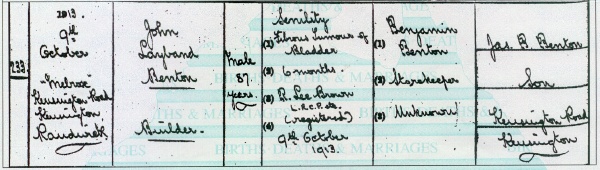 233
2013.
9th
October
"Melrose"
Kensington Road
Kensington
Randwick
John
Layland
Benton
Builder.
Male
87
years.
Senility
(1) Fibrous Tumour of
Bladder
(2) 6 months.
(3) R. Lee Brown
L.R.C.P. &c.
(registered)
(4) 9th October
1913.
(1) Benjamin
Benton
(2) Storekeeper
(3) Unknown
Jas. B. Benton
Son
Kensington Road
Kensington
BIRTHS DEATHS & MARRIAGES